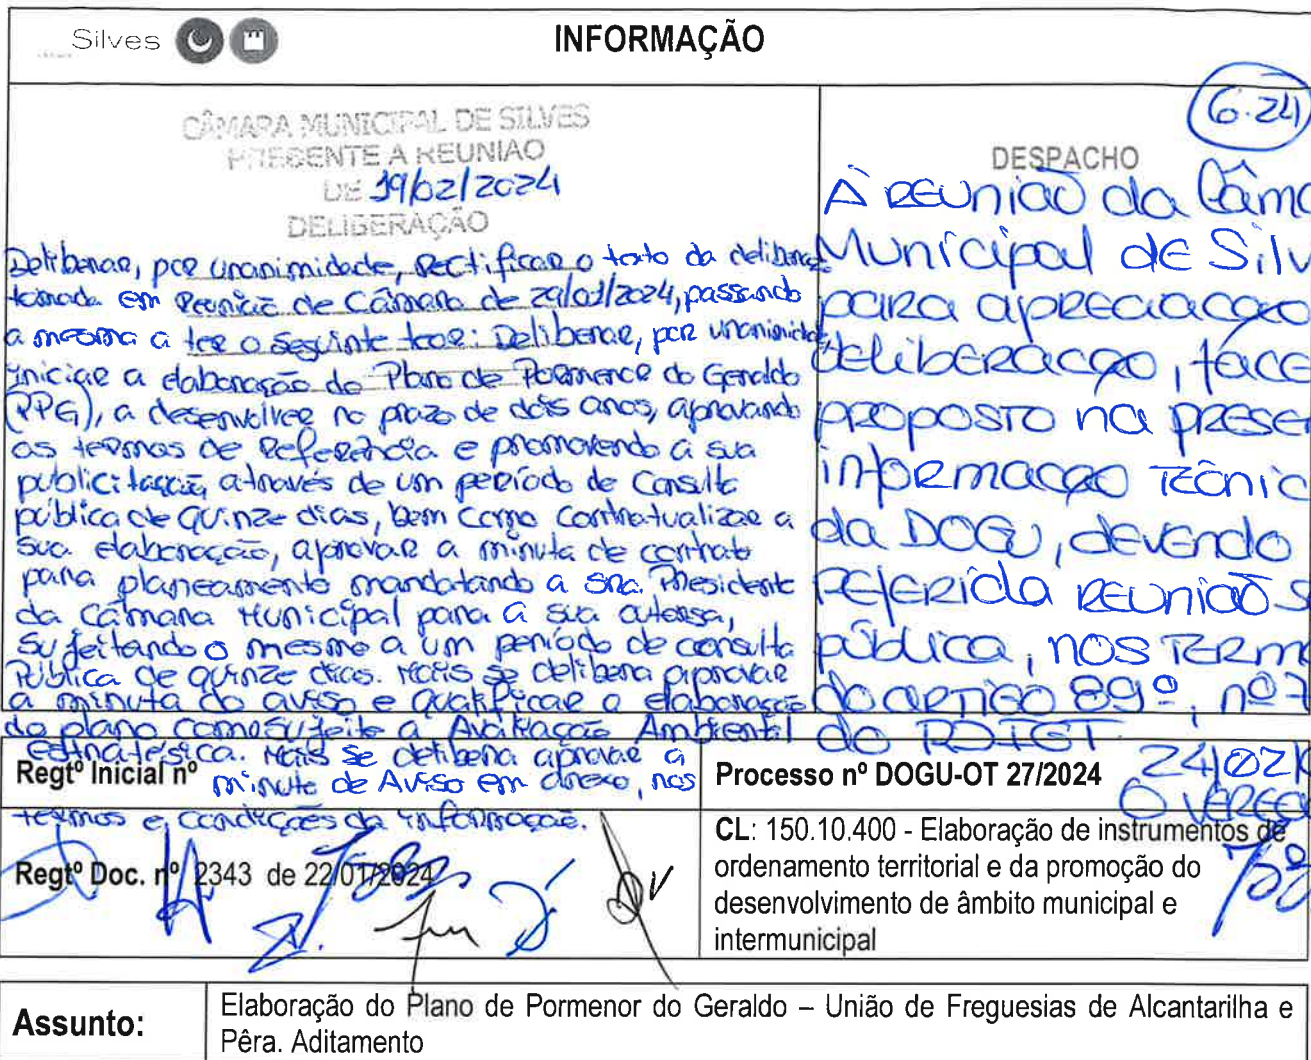 Silves
INFORMAÇÃO
CÂMARA MUNICIPAL DE SILVES
PRESENTE A REUNIAO
DE 19/02/2024
DELIBERAÇÃO
Deliberar, por unanimidade, rectificar o texto da
tomada em Reunião de Câmara de 29/01/2024, passando
a mesma a ter o seguinte teor: Deliberar, por unanimidade,
iniciar a elaboração do Plano de Pormenor do Geraldo
(PPG), a desenvolver no prazo de dois anos, aprovando
os termos de Referência e promovendo a sua
publicitação, através de um período de Consulta
pública de quinze dias, bem como Contratualizar a
sua elaboração, aprovar a minuta de contrato
para planeamento mandatando a Sra. Presidente
da Câmara Municipal para a sua
sujeitando o mesmo a um período de consulta
Pública de quinze dias. Mais se delibera aprovar
a minuta do aviso e qualificar a elaboração
do plano como sujeito a Avaliação Ambiental
Estratégica. Mais se delibera aprovar a
minuta de Aviso em anexo, nos
termos e condições da informação.
6.24
DESPACHO
À REUNIÃO da Câm
Municipal de Silv
para apreciação
deliberação, face
proposto na prese
informação técnic
da DOGU, devendo
referida reunião s
pública, nos term
do artigo 89º, nº
do RJIGT.
24/02
O VEREA
Regtº Inicial nº
Processo nº DOGU-OT 27/2024
Regtº Doc. nº 2343 de 22/01/2024
CL: 150.10.400 - Elaboração de instrumentos de
ordenamento territorial e da promoção do
desenvolvimento de âmbito municipal e
intermunicipal
Assunto:
Elaboração do Plano de Pormenor do Geraldo – União de Freguesias de Alcantarilha e
Pêra. Aditamento